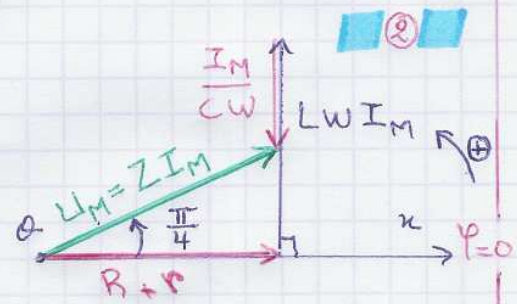 ②
I_M
CW
LWI_M
⊕
U_M=ZI_M
π
4
O
x
φ=0
R+r